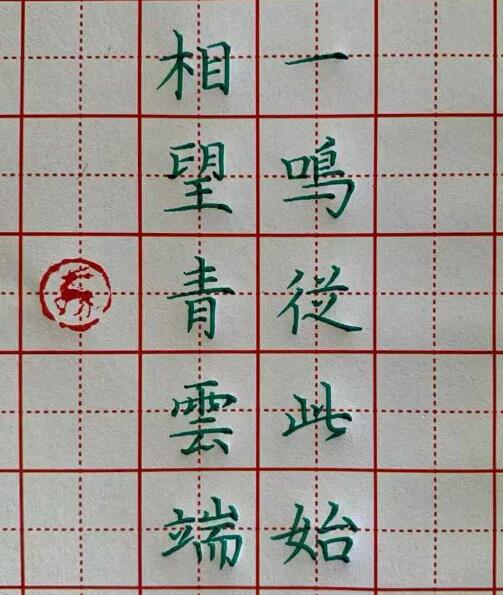 一鳴從此始
相望青雲端